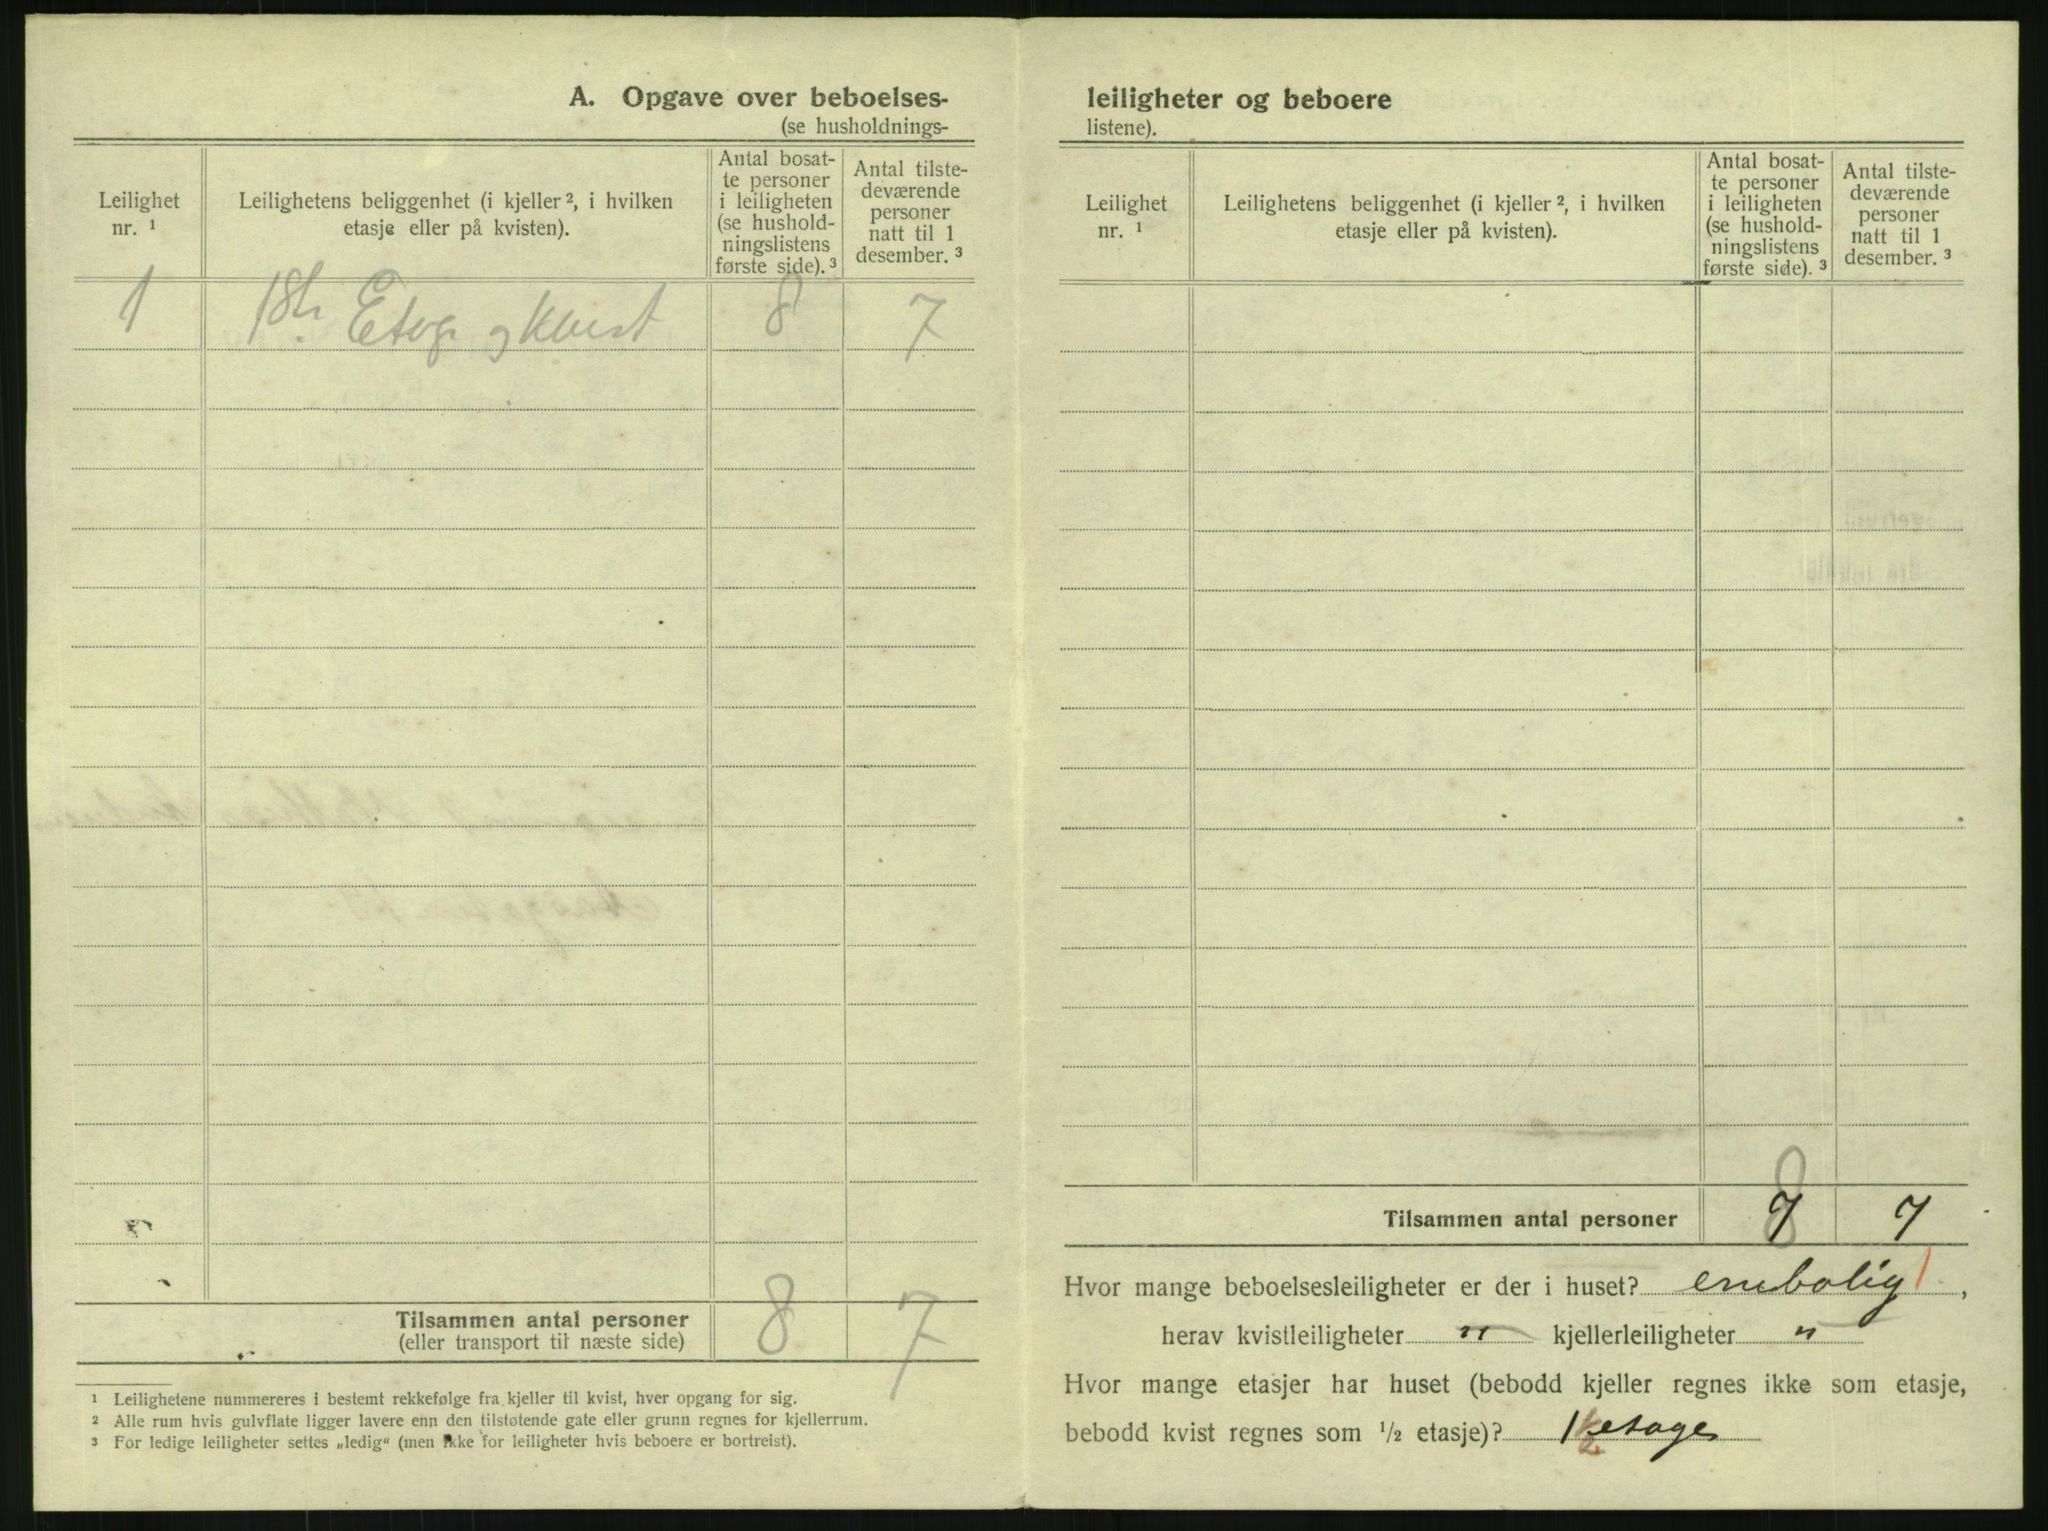 A. Opgave over beboelses-
(se husholdnings-
Leilighet
nr. ¹
Leilighetens beliggenhet (i kjeller ², i hvilken
etasje eller på kvisten).
Antal bosat-
te personer
i leiligheten
(se hushold-
ningslistens
første side). ³
Antal tilste-
deværende
personer
natt til 1
desember. ³
1 Etage og kvist 8 7
Tilsammen antal personer
(eller transport til næste side)
8 7
¹ Leilighetene nummereres i bestemt rekkefølge fra kjeller til kvist, hver opgang for sig.
² Alle rum hvis gulvflate ligger lavere enn den tilstøtende gate eller grunn regnes for kjellerrum.
³ For ledige leiligheter settes „ledig“ (men ikke for leiligheter hvis beboere er bortreist).
leiligheter og beboere
listene).
Leilighet
nr. ¹
Leilighetens beliggenhet (i kjeller ², i hvilken
etasje eller på kvisten).
Antal bosat-
te personer
i leiligheten
(se hushold-
ningslistens
første side). ³
Antal tilste-
deværende
personer
natt til 1
desember. ³
8
Tilsammen antal personer 7 7
Hvor mange beboelsesleiligheter er der i huset? enebolig 1,
herav kvistleiligheter " kjellerleiligheter "
Hvor mange etasjer har huset (bebodd kjeller regnes ikke som etasje,
bebodd kvist regnes som ½ etasje)? 1½ etage